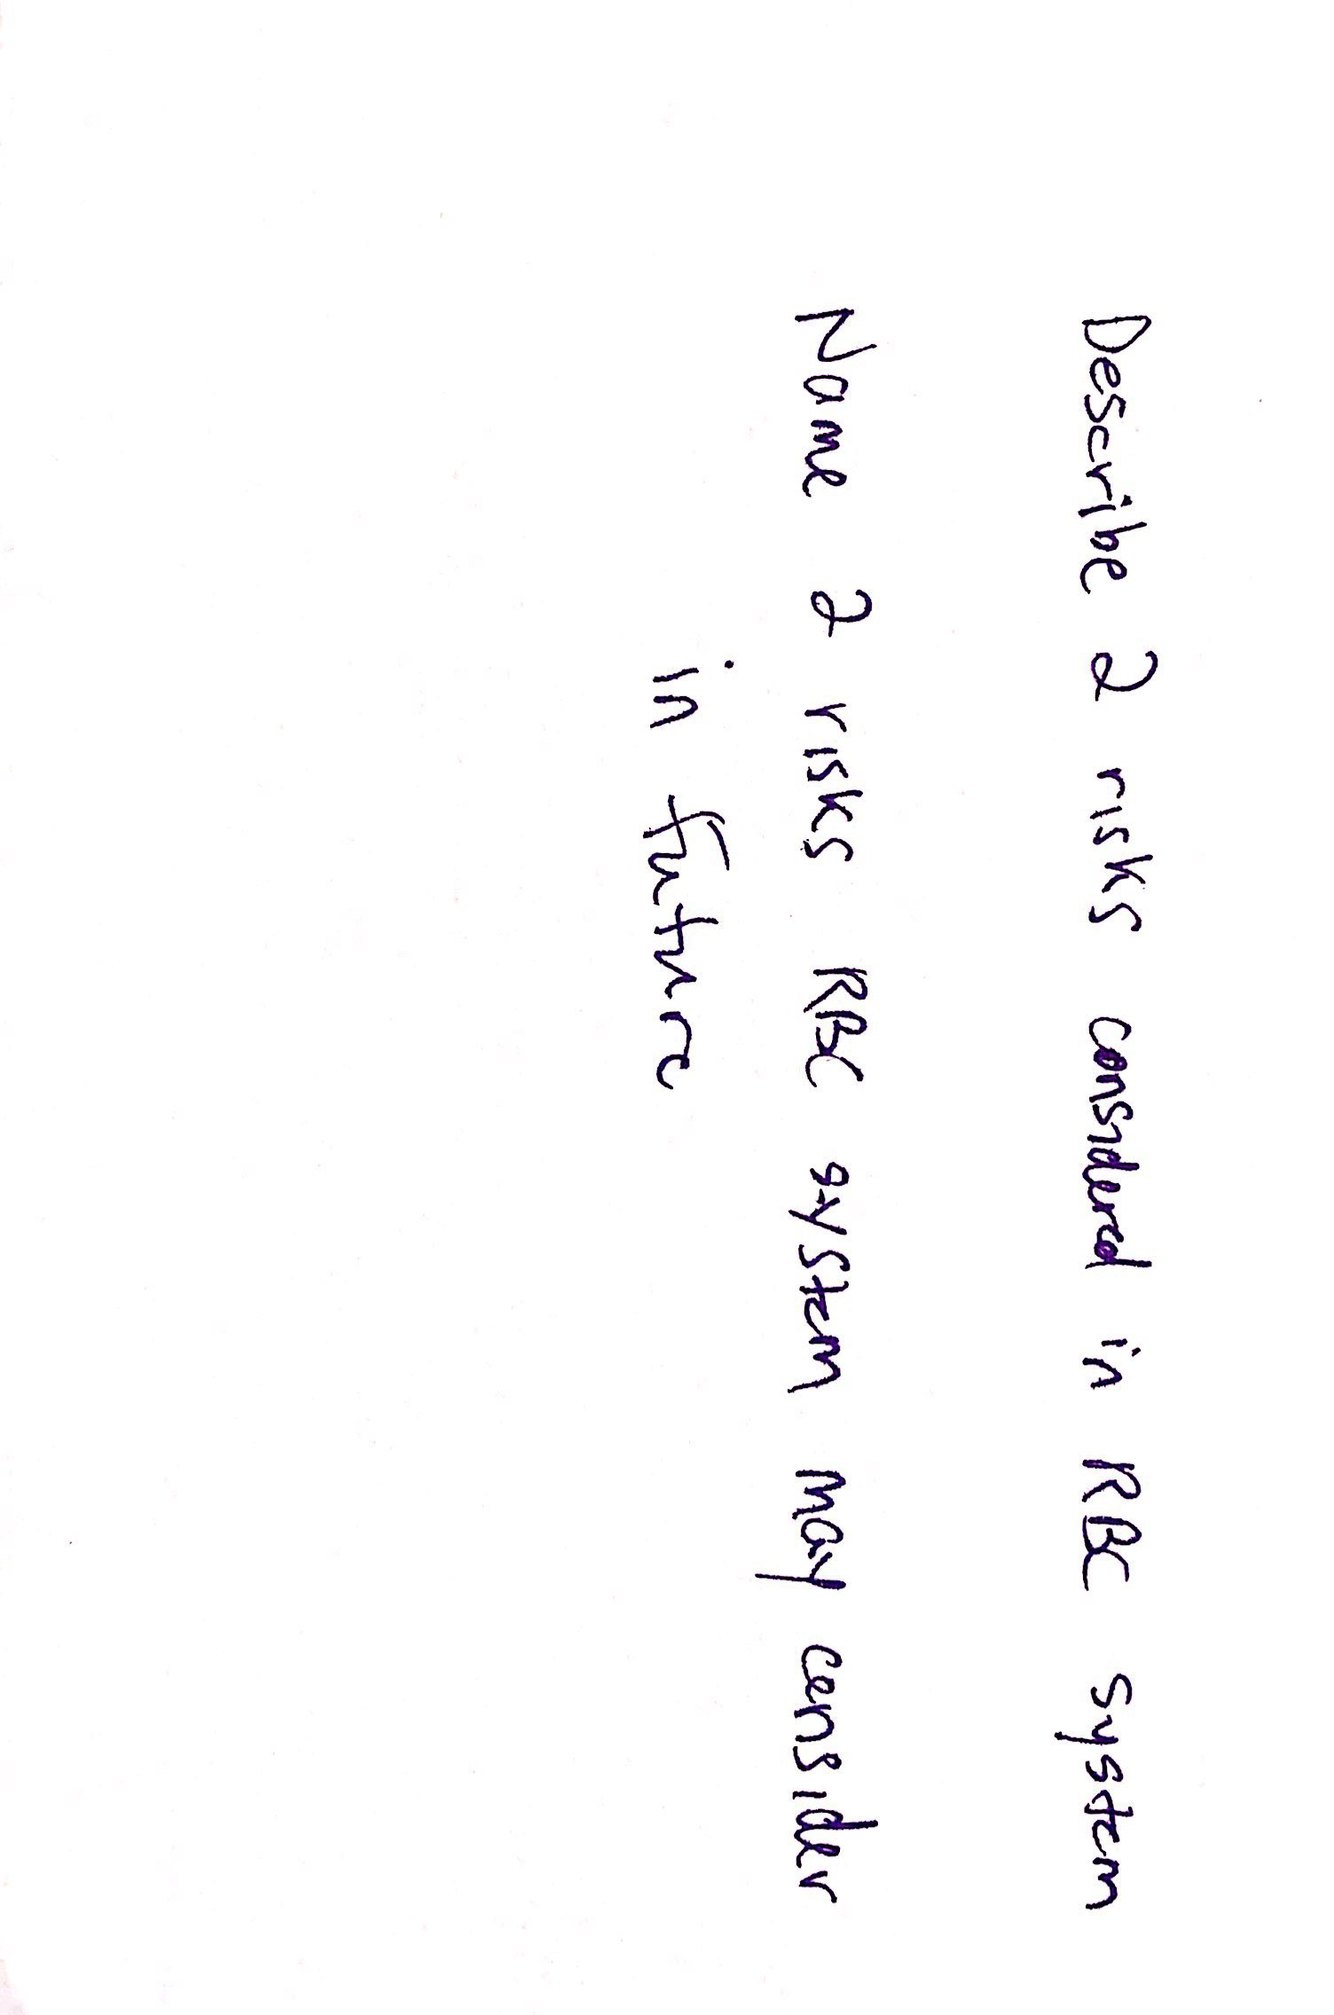 Describe 2 risks considered in RBC system
Name 2 risks RBC system may consider
in future